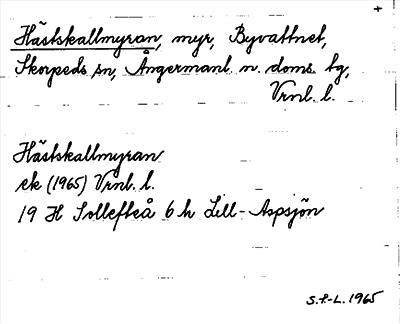 +
Hästskallmyran, myr, Byvattnet,
Skorpeds sn, Ångermanl. n. doms. tg,
Vrnl. l.
Hästskallmyran
ek (1965) Vrnl. l.
19 H Sollefteå 6 h Lill-Aspsjön
S.F-L. 1965